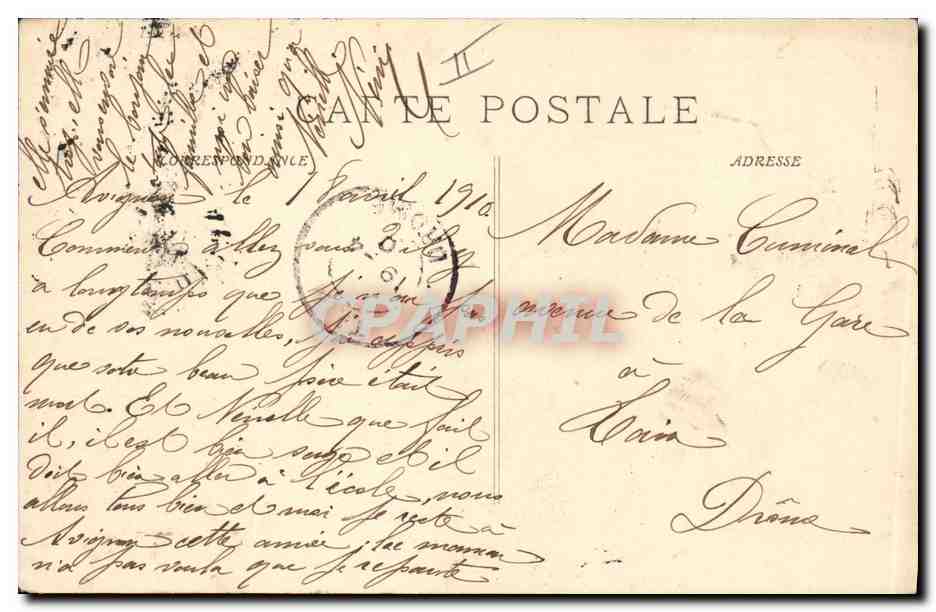 II
CARTE POSTALE
CORRESPONDANCE
ADRESSE
Avignon le 1 avril 1910
Comment allez vous il y
à longtemps que je n'ai pas
eu de vos nouvelles, j'ai appris
que votre beau frère était
mort. Et Nenelle que fait
il, il est bien sage et il
doit bien aller à l'école, nous
allons tous bien et moi je reste à
Avignon cette année, la maman
n'a pas voulu que je reparte
vous
le bonjour
famille et
moi
un baiser
ainsi qu'a
Nenelle
Madame Cuminal
avenue de la Gare
à
Tain
Drôme
CPAPHIL